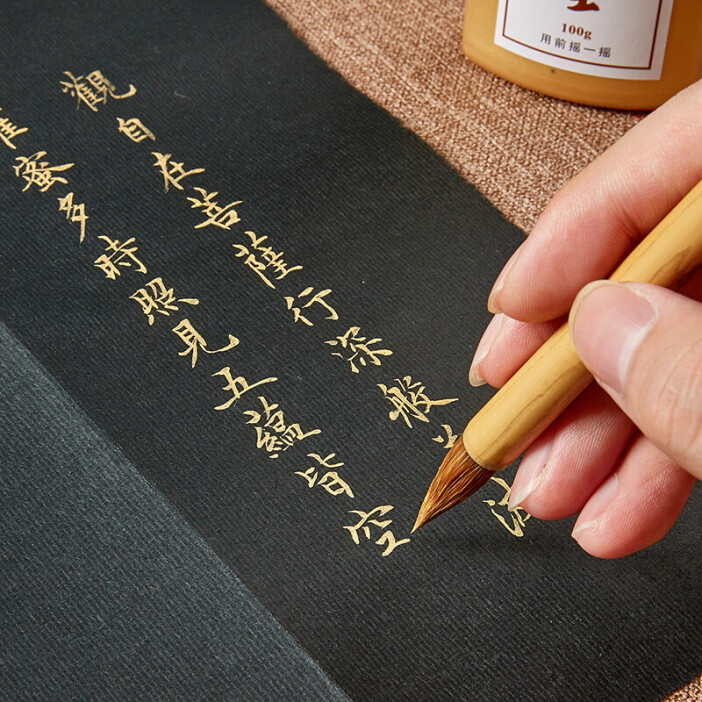 觀自在菩薩行深般
蜜多時照見五蘊皆空
100g
用前摇一摇